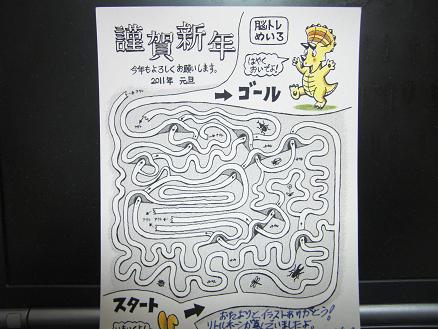 謹賀新年
今年もよろしくお願いします。
2011年 元旦
脳トレ
めいろ
はやく
おいでよ!
→ゴール
スタート →
おたよりとイラストありがとう!